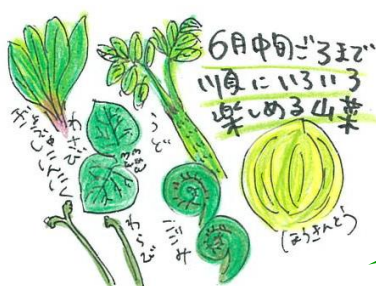 6月中旬ごろまで
順にいろいろ
楽しめる山菜
ぎょうじゃにんにく
わさび
うど
わらび
こごみ